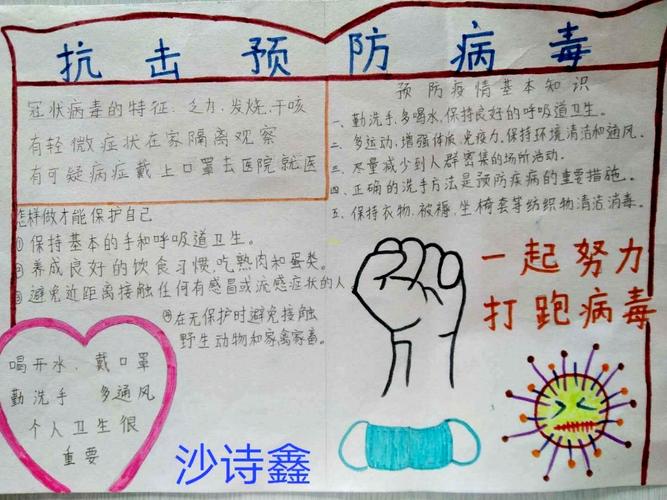 抗击预防病毒
冠状病毒的特征:乏力、发烧、干咳
有轻微症状在家隔离观察
有可疑病症戴上口罩去医院就医
怎样做才能保护自己
①保持基本的手和呼吸道卫生。
②养成良好的饮食习惯,吃熟肉和蛋类。
③避免近距离接触任何有感冒或流感症状的人
④在无保护时避免接触
野生动物和家禽家畜。
喝开水、戴口罩
勤洗手 多通风
个人卫生很
重要
预防疫情基本知识
一、勤洗手、多喝水,保持良好的呼吸道卫生。
二、多运动,增强体质、免疫力,保持环境清洁和通风。
三、尽量减少到人群密集的场所活动。
四、正确的洗手方法是预防疾病的重要措施。
五、保持衣物、被褥、坐椅套等纺织物清洁消毒。
一起努力
打跑病毒
沙诗鑫